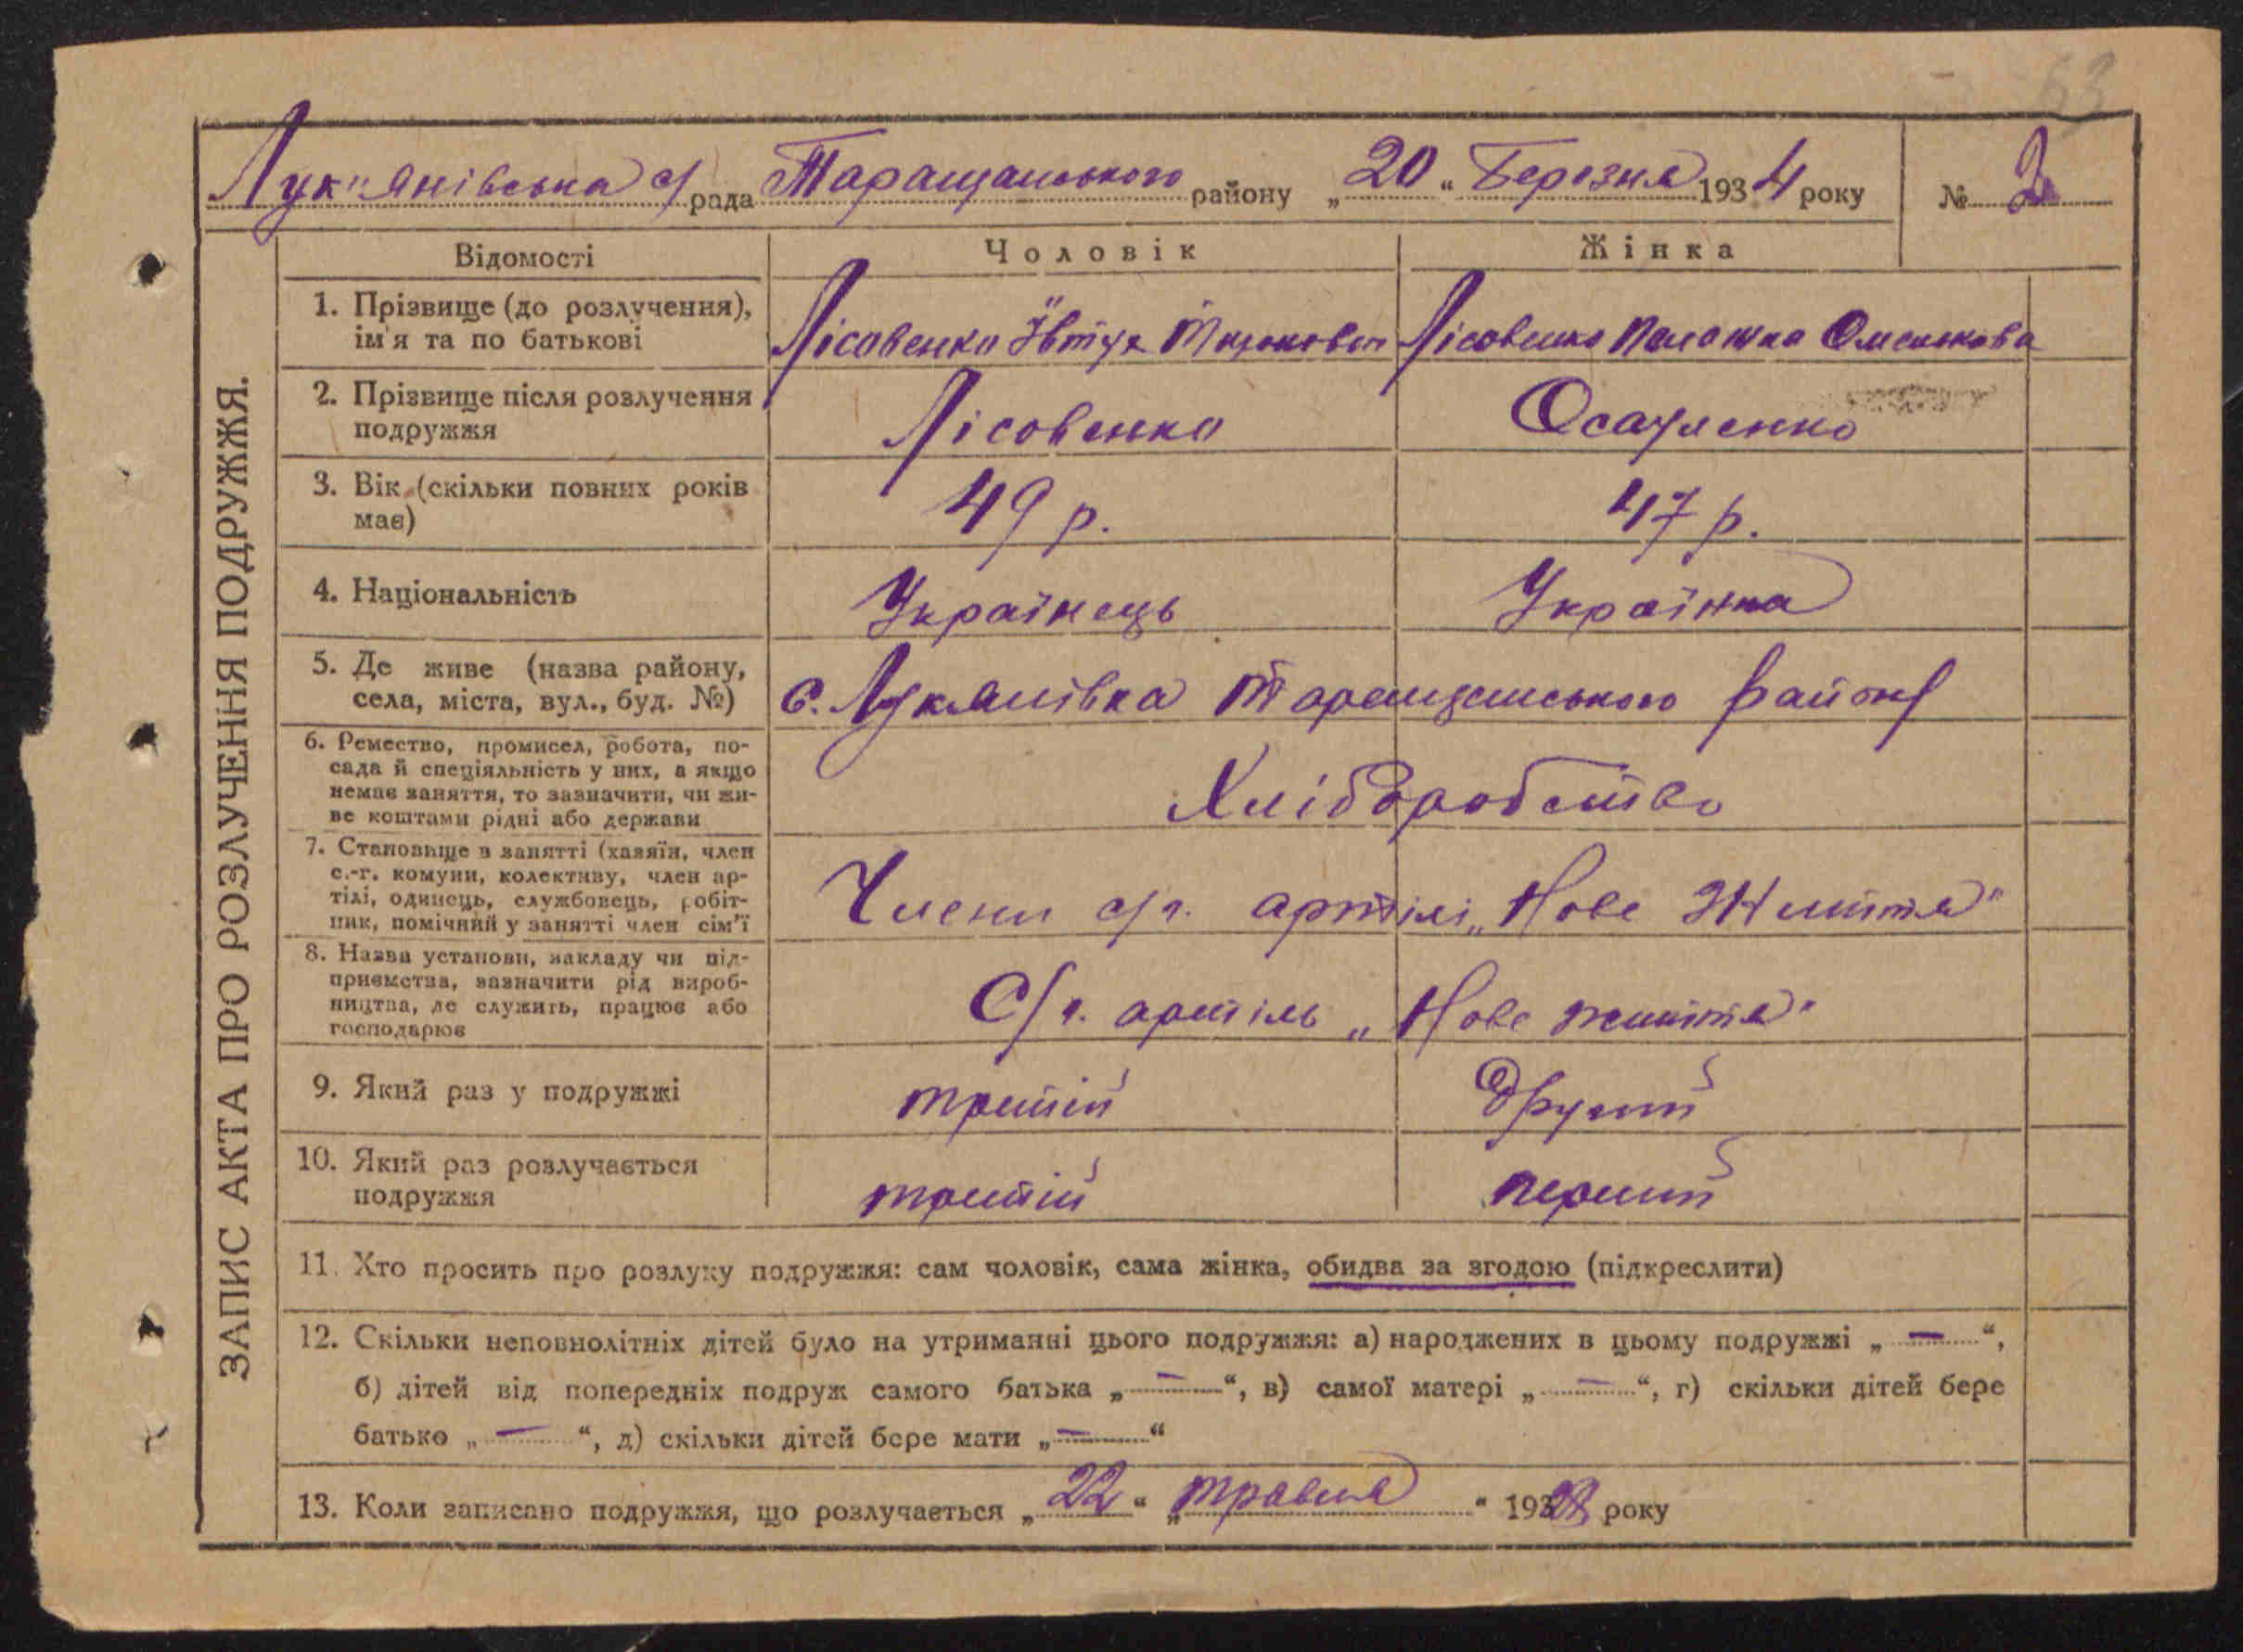 63
Лук"янівська с/рада Таращанського району „20“ Березня 1934 року № 2
ЗАПИС АКТА ПРО РОЗЛУЧЕННЯ ПОДРУЖЖЯ.
Відомості Чоловік Жінка
1. Прізвище (до розлучення), ім'я та по батькові
Лісовенко Явтух Лісовенко Палажка Омелькова
2. Прізвище після розлучення подружжя
Лісовенко Осауленко
3. Вік (скільки повних років має)
49 р. 47 р.
4. Національність Українець Українка
5. Де живе (назва району, села, міста, вул., буд. №)
с. Лукянівка Таращанського району
6. Ремество, промисел, робота, по-
сада й спеціяльність у них, а якщо
немає заняття, то зазначити, чи жи-
ве коштами рідні або держави
Хліборобство
7. Становище в занятті (хазяїн, член
с.-г. комуни, колективу, член ар-
тілі, одинець, службовець, робіт-
ник, помічний у занятті член сім'ї
Члени с/г. артілі „Нове Життя"
8. Назва установи, закладу чи під-
приємства, зазначити рід вироб-
ництва, де служить, працює або
господарює
С/г. артіль „Нове життя"
9. Який раз у подружжі третій Другий
10. Який раз розлучається
подружжя
третій перший
11. Хто просить про розлуку подружжя: сам чоловік, сама жінка, обидва за згодою (підкреслити)
12. Скільки неповнолітніх дітей було на утриманні цього подружжя: а) народжених в цьому подружжі „—“,
б) дітей від попередніх подруж самого батька „—“, в) самої матері „—“, г) скільки дітей бере
батько „—“, д) скільки дітей бере мати „—“
13. Коли записано подружжя, що розлучається „22“ „травня“ 1928 року